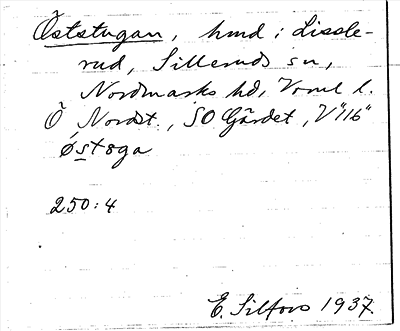 Öststugan, hmd i Lissle-
rud, Silleruds sn,
Nordmarks hd, Vrml l.
Ö Nordst., SO Gärdet, V"116"
østøga
250:4
E. Silfors 1937.